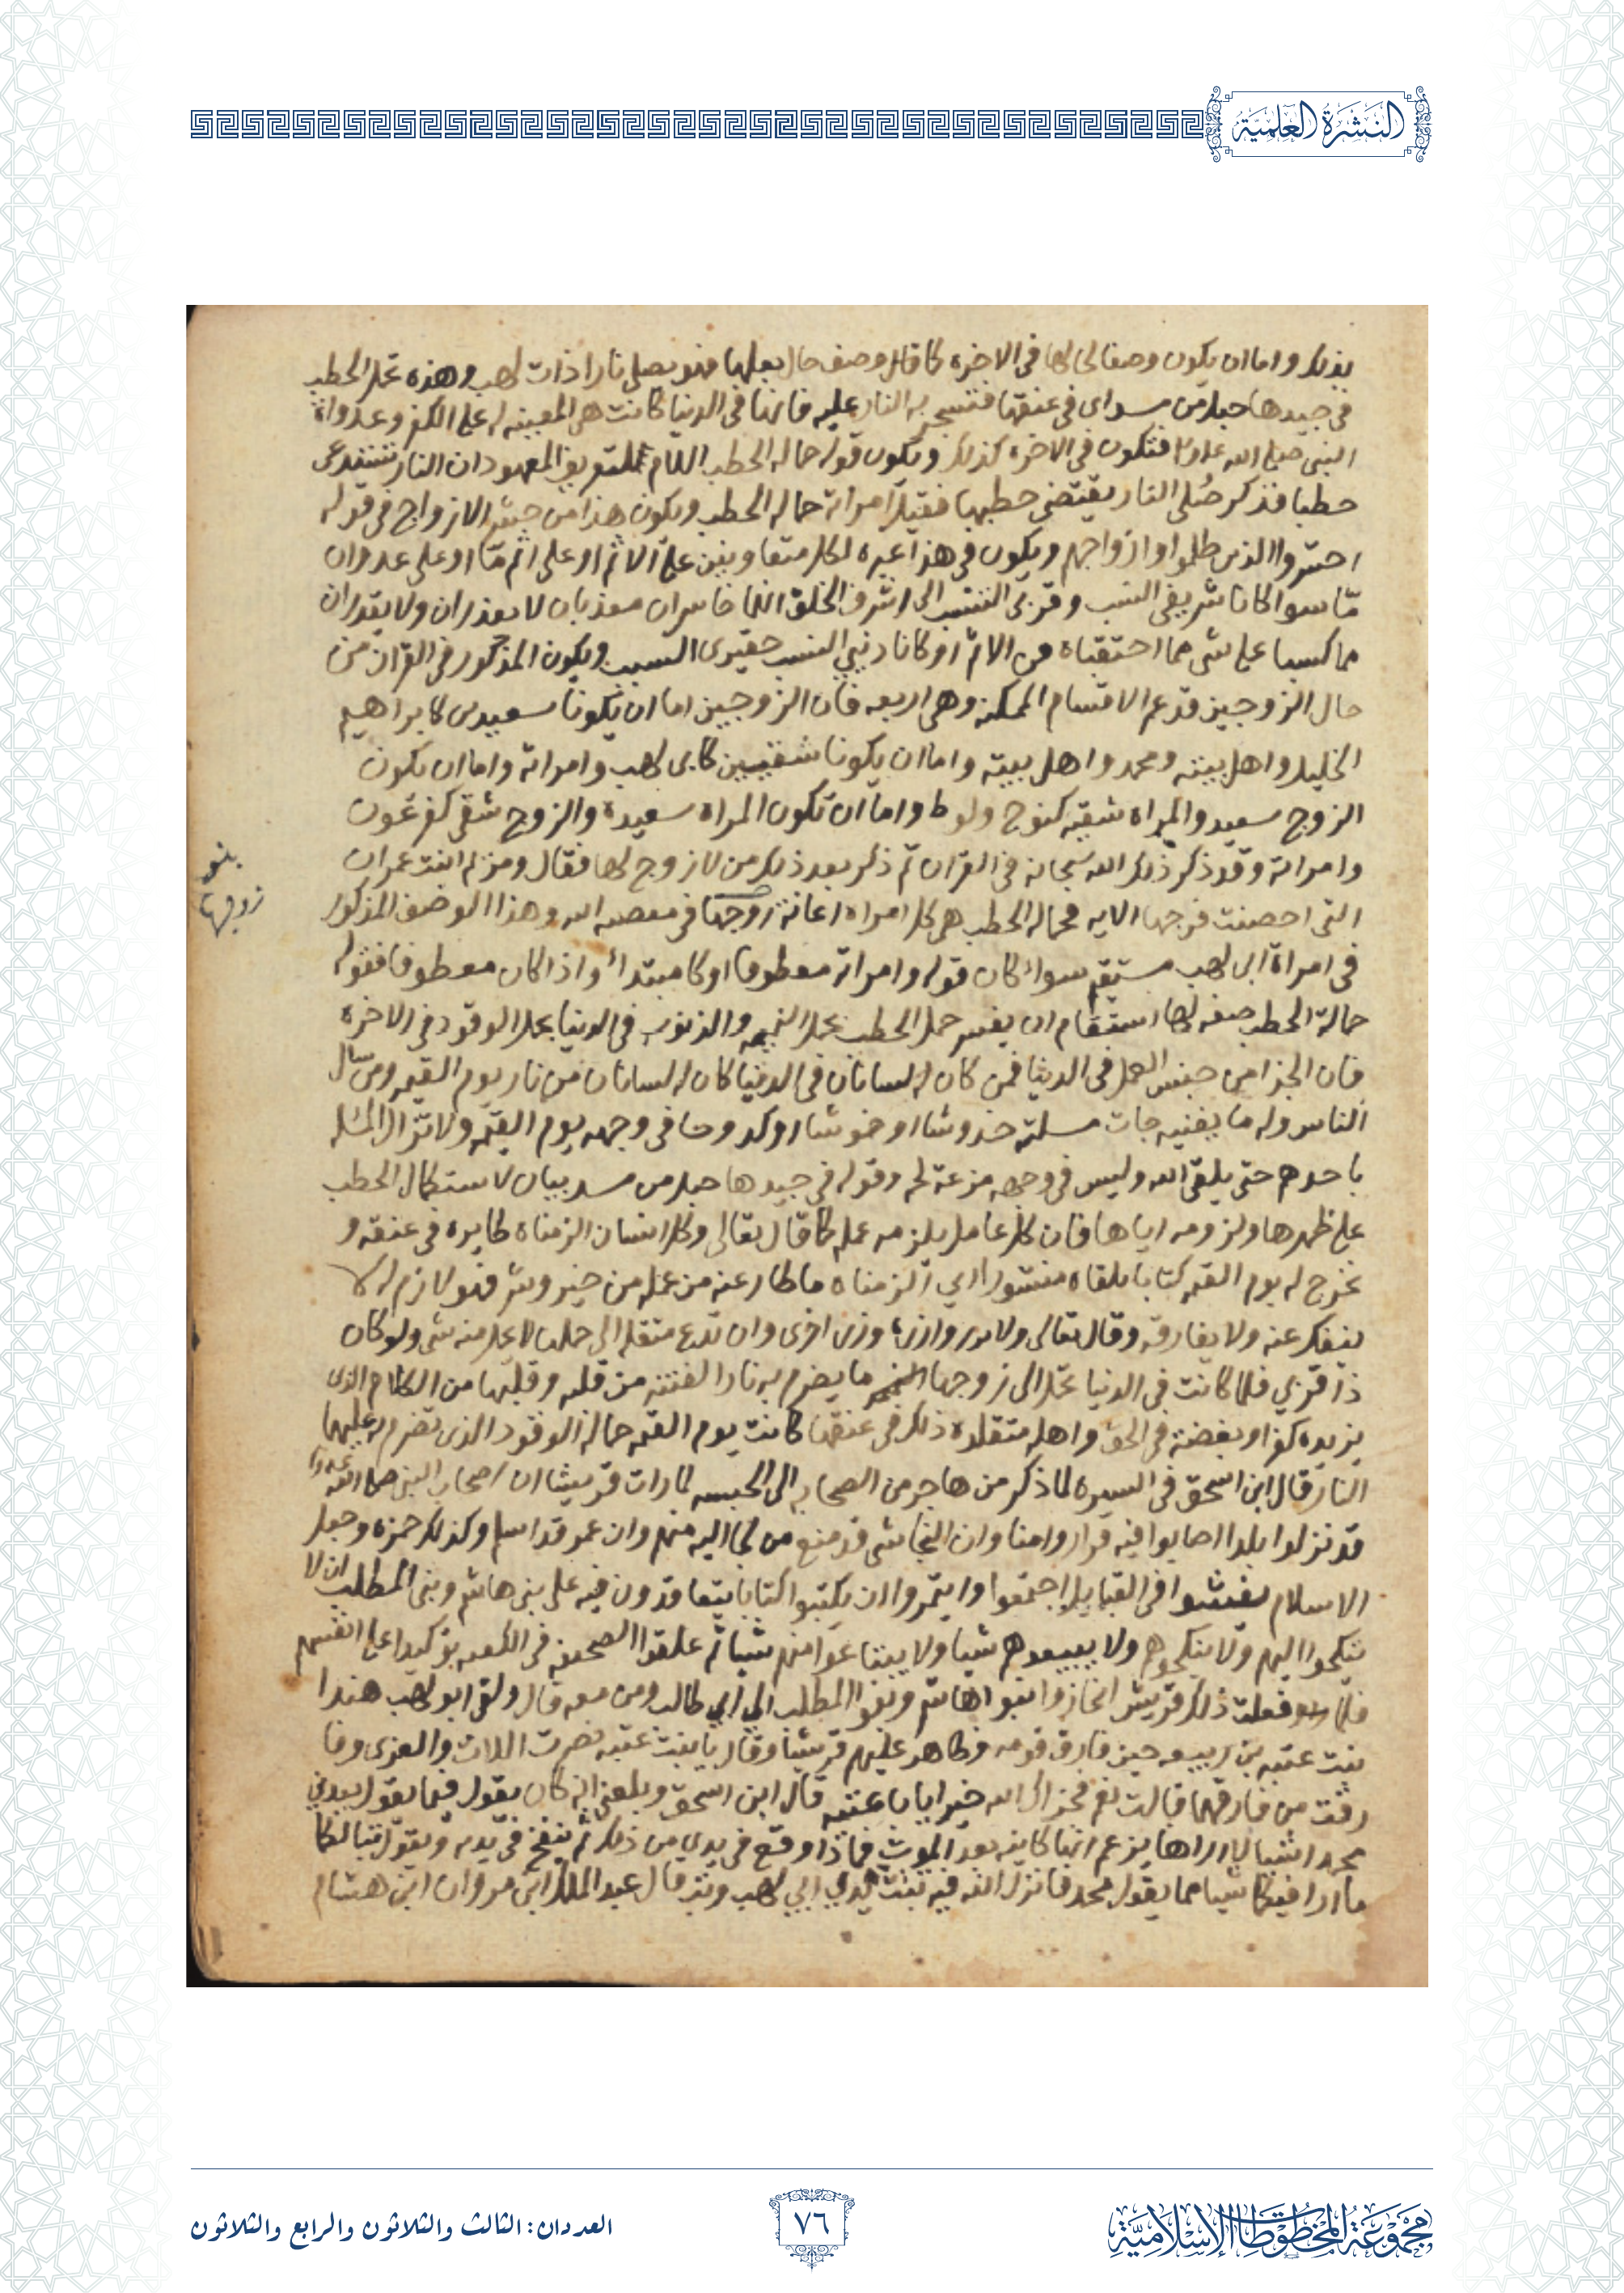 النشرة العلمية
بذلك واما ان يكون وصفا لحالها في الاخرة كما قال وصف حال بعلها فهو يصلى نارا ذات لهب وهذه تحمل الحطب
في جيدها حبل من مسد اى في عنقها فتسجر به النار عليه فانها في الدنيا كانت هي المعينه له على الكفر وعداوة
النبي صلى الله عليه فتكون في الاخرة كذلك ويكون قوله حمالة الحطب اللام للتعريف المعهود ان النار تستدعى
حطبا فذكر صلى النار يقتضى حطبها فقيل امراته حماله الحطب ويكون هذا من جنس الازواج في قوله
احشروا الذين ظلموا وازواجهم ويكون في هذا عبره لكل متعاونين على الاثم او على اثم مّا او على عدوان
مّا سوا كانا شريفي النسب وقربى النسب الى اشرف الخلق انهما خاسران معذبان لا يعذران ولا يقدران
مما كسبا على شى مما احتقباه من الاثم او كانا دنيي النسب حقيرى السبب ويكون المذكور في القران من
حال الزوجين قد عم الاقسام الممكنه وهي اربعه فان الزوجين اما ان يكونا سعيدين كابراهيم
الخليل واهل بيته ومحمد واهل بيته واما ان يكونا شقيين كابى لهب وامراته واما ان يكون
الزوج سعيد والمراه شقيه كنوح ولوط واما ان تكون المراه سعيدة والزوج شقى كفرعون
وامراته وقد ذكر ذلك الله سبحانه في القران ثم ذكر بعد ذلك من لا زوج لها فقال ومريم ابنت عمران
التى احصنت فرجها الايه فحمالة الحطب هى كل امراه اعانة زوجها في معصيه الله وهذا الوصف المذكور
زوجها
في امراة ابى لهب مستقيم سواء كان قوله وامراته معطوفا او كا مبتداء واذا كان معطوفا فقوله
حمالة الحطب صفه لها استقام ان يفسر حمل الحطب بحمل النميمه والذنوب في الدنيا بحمل الوقود في الاخره
فان الجزا من جنس العمل في الدنيا فمن كان له لسانان في الدنيا كان له لسانان من نار يوم القيمه ومن سال
الناس وله ما يغنيه جات مسلته خدوشا او خموشا او كدوحا في وجهه يوم القيمه ولا تزال المسله
باحدهم حتى يلقى الله وليس في وجهه مزعة لحم وقوله في جيدها حبل من مسد بيان لاستكمال الحطب
على ظهرها ولزومه اياها فان كل عامل يلزمه عمله كما قال تعالى وكل انسان الزمناه طايره في عنقه و
نخرج له يوم القيمه كتابا يلقاه منشورا اي الزمناه ما طار عنه من عمله من خير وشر فهو لازم له لا
ينفك عنه ولا يفارقه وقال تعالى ولا تزر وازرة وزر اخرى وان تدع مثقله الى حملها لا يحمل منه شى ولو كان
ذا قربي فلما كانت في الدنيا تحمل الى زوجها ما يضرم به نار الفتنه من قلبه وقلبها من الكلام الذى
يزيده كفرا وبغضة في الحق واهله متقلده ذلك في عنقها كانت يوم القيمه حمالة الوقود الذى تضرم به عليهما
النار قال ابن اسحق في السيره لما ذكر من هاجر من الصحابه الى الحبشه لما رات قريشا ان اصحاب النبي صلى الله عليه
قد نزلوا بلدا اصابوا فيه قرارا وامنا وان النجاشى قد منع من لجا اليه منهم وان عمر قد اسلم وكذلك حمزه وجعل
الاسلام يفشوا في القبايل اجتمعوا وايتمروا ان يكتبوا كتابا يتعاقدون فيه على بنى هاشم وبنى المطلب ان لا
ينكحوا اليهم ولا ينكحوهم ولا يبيعوهم شيا ولا يبتاعوا منهم شيا ثم علقوا الصحيفه في الكعبه توكيدا على انفسهم
فلما فعلت ذلك قريش انحازوا بنوا هاشم وبنوا المطلب الى ابي طالب ومن معه قال ولقى ابو لهب هندا
بنت عتبه بن ربيعه حين فارق قومه وظاهر عليهم قريشا وقال يا بنت عتبه نصرت اللات والعزى وفا
رقت من فارقهما قالت نعم فجزاك الله خيرا يابا عتبه قال ابن اسحق وبلغنى انه كان يقول فيما يقول يعدني
محمد اشيا لا اراها يزعم انها كاينه بعد الموت فماذا وقع في يدي من ذلك ثم ينفخ في يديه ويقول تبا لكما
ما ارا فيكما شيا مما يقول محمد فانزل الله فيه تبت يدي ابي لهب وتب قال عبد الملك ابن مروان ابن هشام
مجموعة المخطوطات الإسلامية
٧٦
العددان: الثالث والثلاثون والرابع والثلاثون